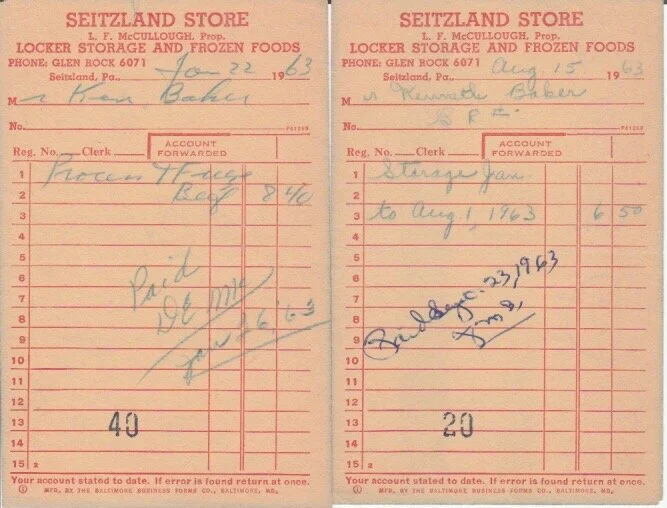 SEITZLAND STORE
L. F. McCULLOUGH, Prop.
LOCKER STORAGE AND FROZEN FOODS
PHONE: GLEN ROCK 6071
Seitzland, Pa., Jan 22 1963
Mr Ken Baker
No.
Reg. No. Clerk ACCOUNT FORWARDED
1 Process & Freeze
2 Beef 8 40
3
4
5
6 Paid
7 D E Mc
8 Jan 26, '63
9
10
11
12
13 40
14
15
Your account stated to date. If error is found return at once.
MFD. BY THE BALTIMORE BUSINESS FORMS CO., BALTIMORE, MD.
SEITZLAND STORE
L. F. McCULLOUGH, Prop.
LOCKER STORAGE AND FROZEN FOODS
PHONE: GLEN ROCK 6071
Seitzland, Pa., Aug 15 1963
Mr Kenneth Baker
No.
Reg. No. Clerk ACCOUNT FORWARDED
1 Storage Jan.
2
3 to Aug 1, 1963 6 50
4
5
6
7
8 Paid Sept. 23, 1963
9
10
11
12
13 20
14
15
Your account stated to date. If error is found return at once.
MFD. BY THE BALTIMORE BUSINESS FORMS CO., BALTIMORE, MD.